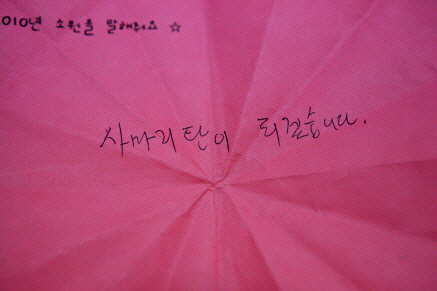 010년 소원을 말해줘요 ☆
사마리탄이 되겠습니다.